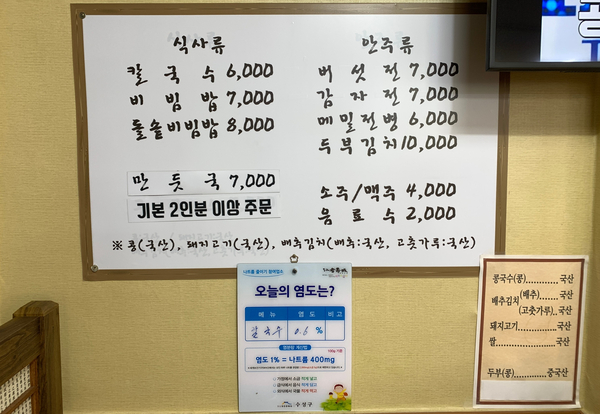 식사류
칼국수 6,000
비빔밥 7,000
돌솥비빔밥 8,000
만둣국 7,000
기본 2인분 이상 주문
안주류
버섯전 7,000
감자전 7,000
메밀전병 6,000
두부김치 10,000
소주/맥주 4,000
음료수 2,000
※ 콩(국산), 돼지고기(국산), 배추김치(배추:국산, 고춧가루:국산)
나트륨 줄이기 참여업소
오늘의 염도는?
메뉴 염도 비고
칼국수 0.6 %
염도 1% = 나트륨 400mg
수성구
콩국수(콩)..........국산
배추김치 (배추)..........국산
(고춧가루)..국산
돼지고기..........국산
쌀..........국산
두부(콩)..........중국산